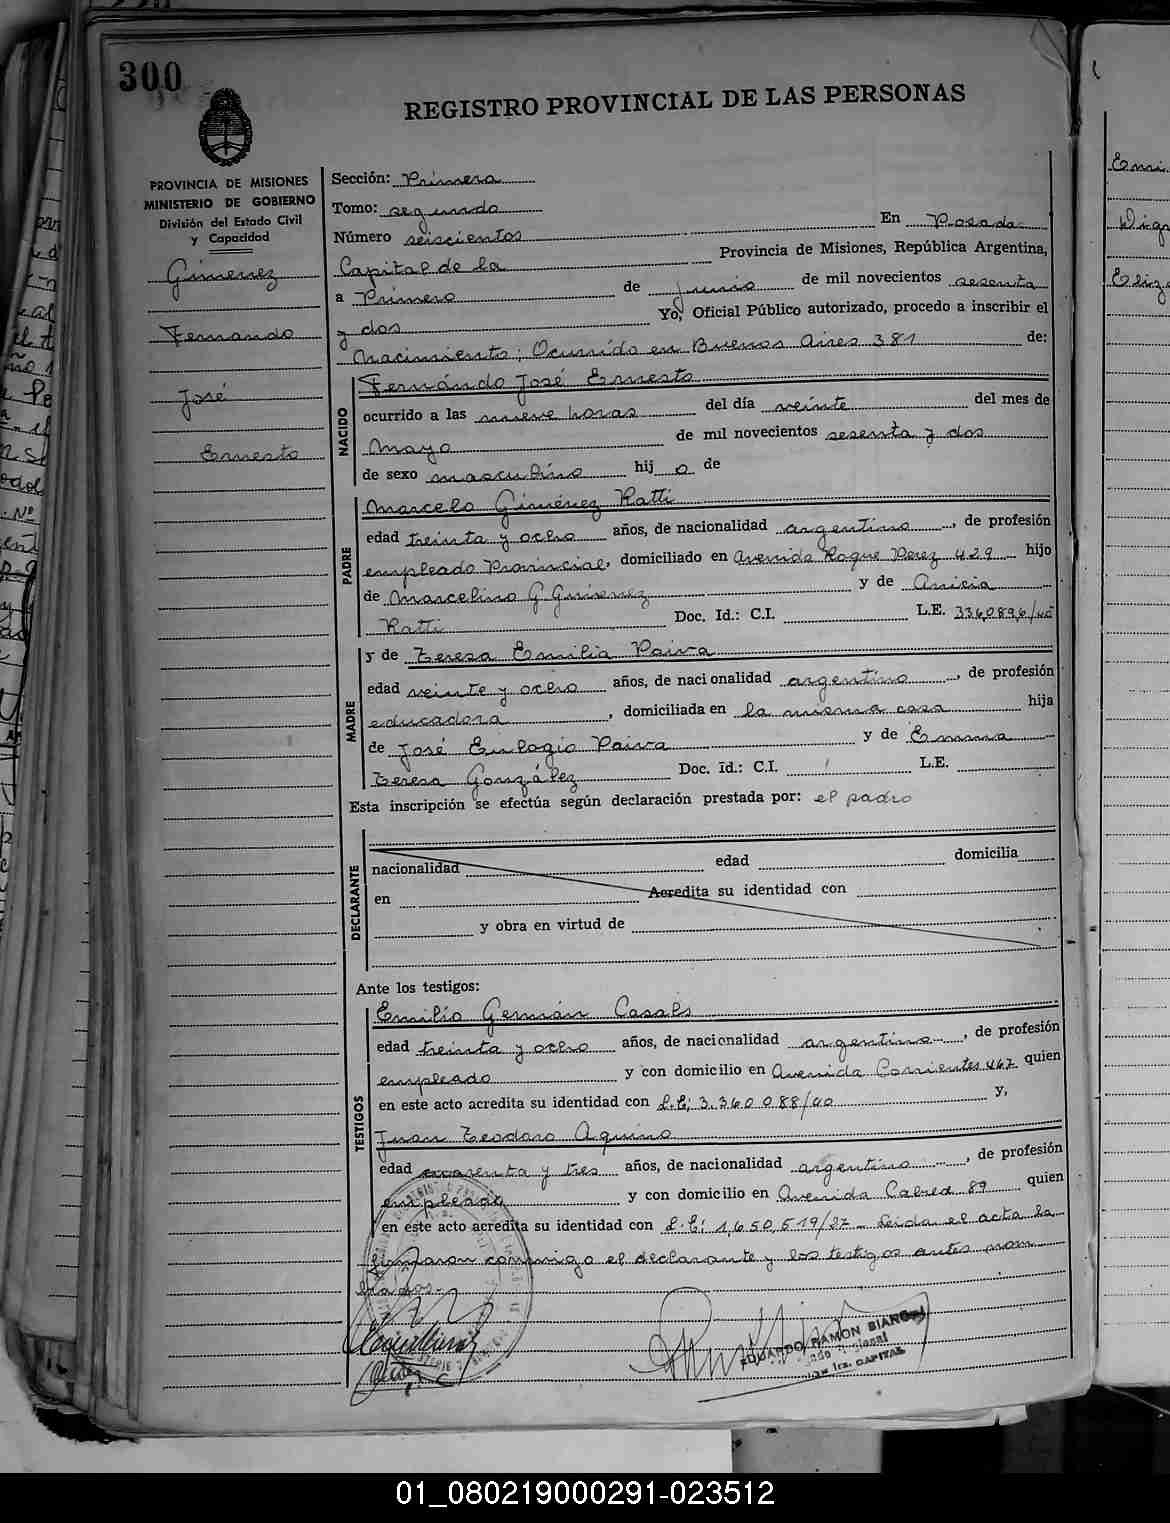 300
REGISTRO PROVINCIAL DE LAS PERSONAS
PROVINCIA DE MISIONES
MINISTERIO DE GOBIERNO
División del Estado Civil
y Capacidad
Gimenez
Fernando
José
Ernesto
Sección: Primera
Tomo: segundo
Número seiscientos En Posadas
Capital de la Provincia de Misiones, República Argentina,
a Primero de junio de mil novecientos sesenta
y dos Yo, Oficial Público autorizado, procedo a inscribir el
nacimiento; Ocurrido en Buenos Aires 381 de:
NACIDO
Fernándo José Ernesto
ocurrido a las nueve horas del día veinte del mes de
Mayo de mil novecientos sesenta y dos
de sexo masculino hij o de
PADRE
Marcelo Giménez Ratti
edad treinta y ocho años, de nacionalidad argentino, de profesión
empleado Provincial, domiciliado en Avenida Roque Perez 429 hijo
de Marcelino G. Gimenez y de Anicia
Ratti Doc. Id.: C.I. L.E. 3360896/40
MADRE
y de Teresa Emilia Paiva
edad veinte y ocho años, de nacionalidad argentina, de profesión
educadora, domiciliada en la misma casa hija
de José Eulogio Paiva y de Emma
Teresa González Doc. id.: C.I. L.E.
Esta inscripción se efectúa según declaración prestada por: el padre
DECLARANTE
nacionalidad edad domicilia
en Acredita su identidad con
y obra en virtud de
Ante los testigos:
TESTIGOS
Emilio Germán Casals
edad treinta y ocho años, de nacionalidad argentino, de profesión
empleado y con domicilio en Avenida Corrientes 467 quien
en este acto acredita su identidad con L.E; 3.360.088/40 y,
Juan Teodoro Aquino
edad cuarenta y tres años, de nacionalidad argentino, de profesión
empleado y con domicilio en Avenida Cabred 89 quien
en este acto acredita su identidad con L.E; 1,650,519/37 - Leida el acta la
firmaron conmigo el declarante y los testigos antes nom
brados.-
EDUARDO RAMON
CAPITAL
01_080219000291-023512